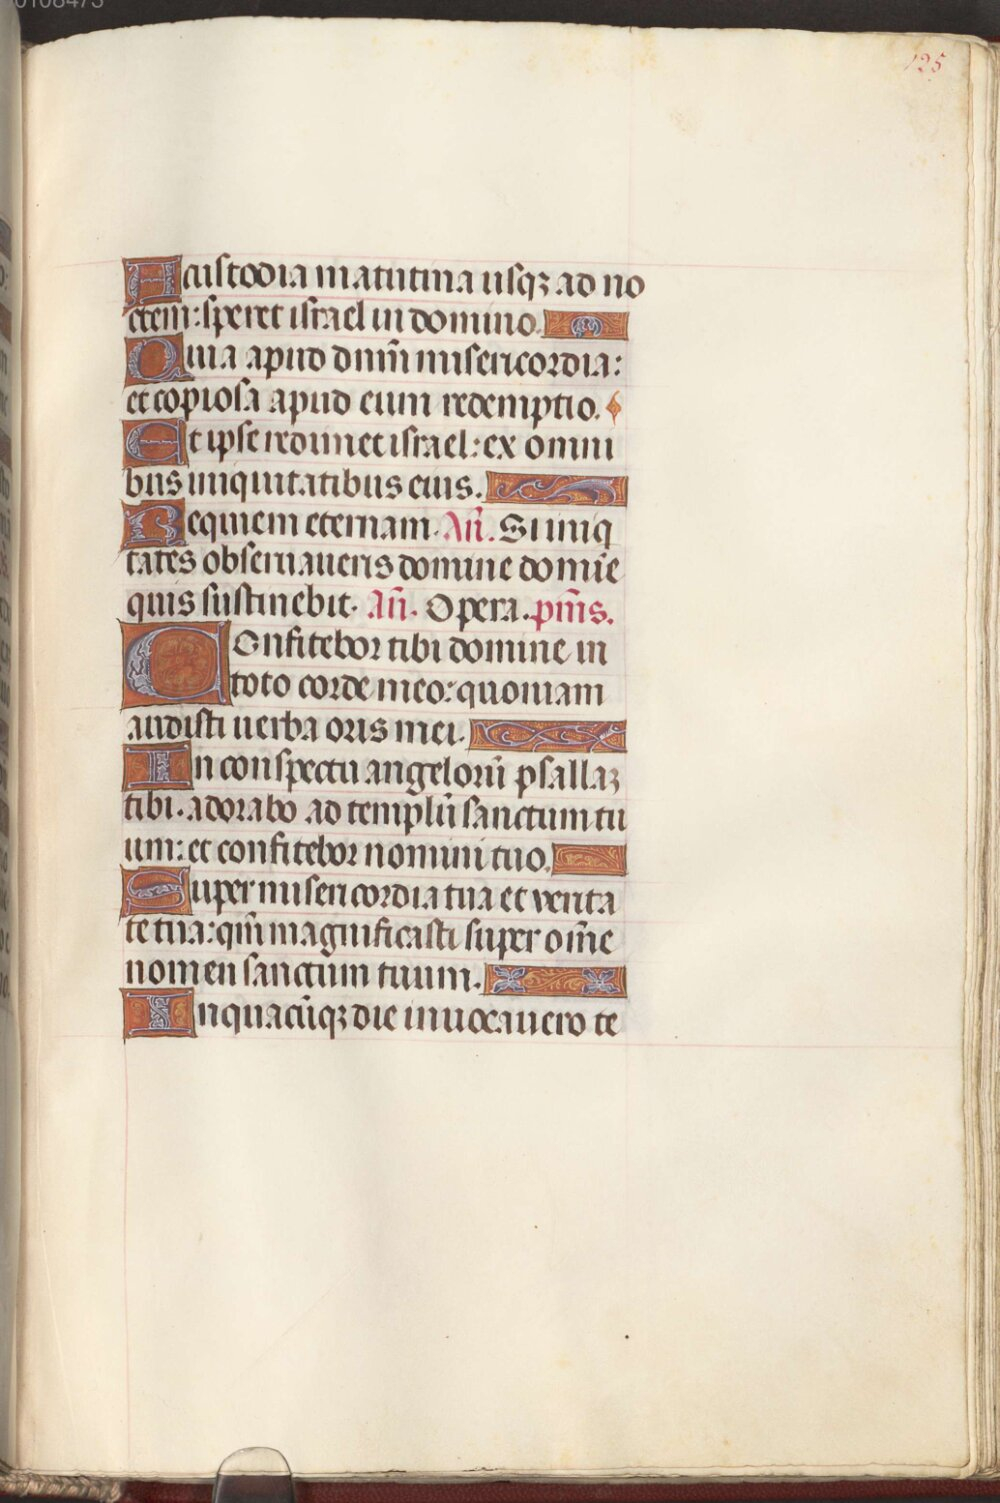 125
A custodia matutina usqꝫ ad no
ctem: speret israel in domino.
Quia apud dnm̄ misericordia:
et copiosa apud eum redemptio.
Et ipse redimet israel: ex omni
bus iniquitatibus eius.
Requiem eternam. An̄. Si iniq
tates obseruaueris domine domīe
quis sustinebit. An̄. Opera. pm̄s.
Confitebor tibi domine in
toto corde meo: quoniam
audisti uerba oris mei.
In conspectu angelorū psallaꝫ
tibi. adorabo ad templū sanctum tu
um: et confitebor nomini tuo.
Super misericordia tua et uerita
te tua: qm̄ magnificasti super om̄e
nomen sanctum tuum.
In quacūqꝫ die inuocauero te